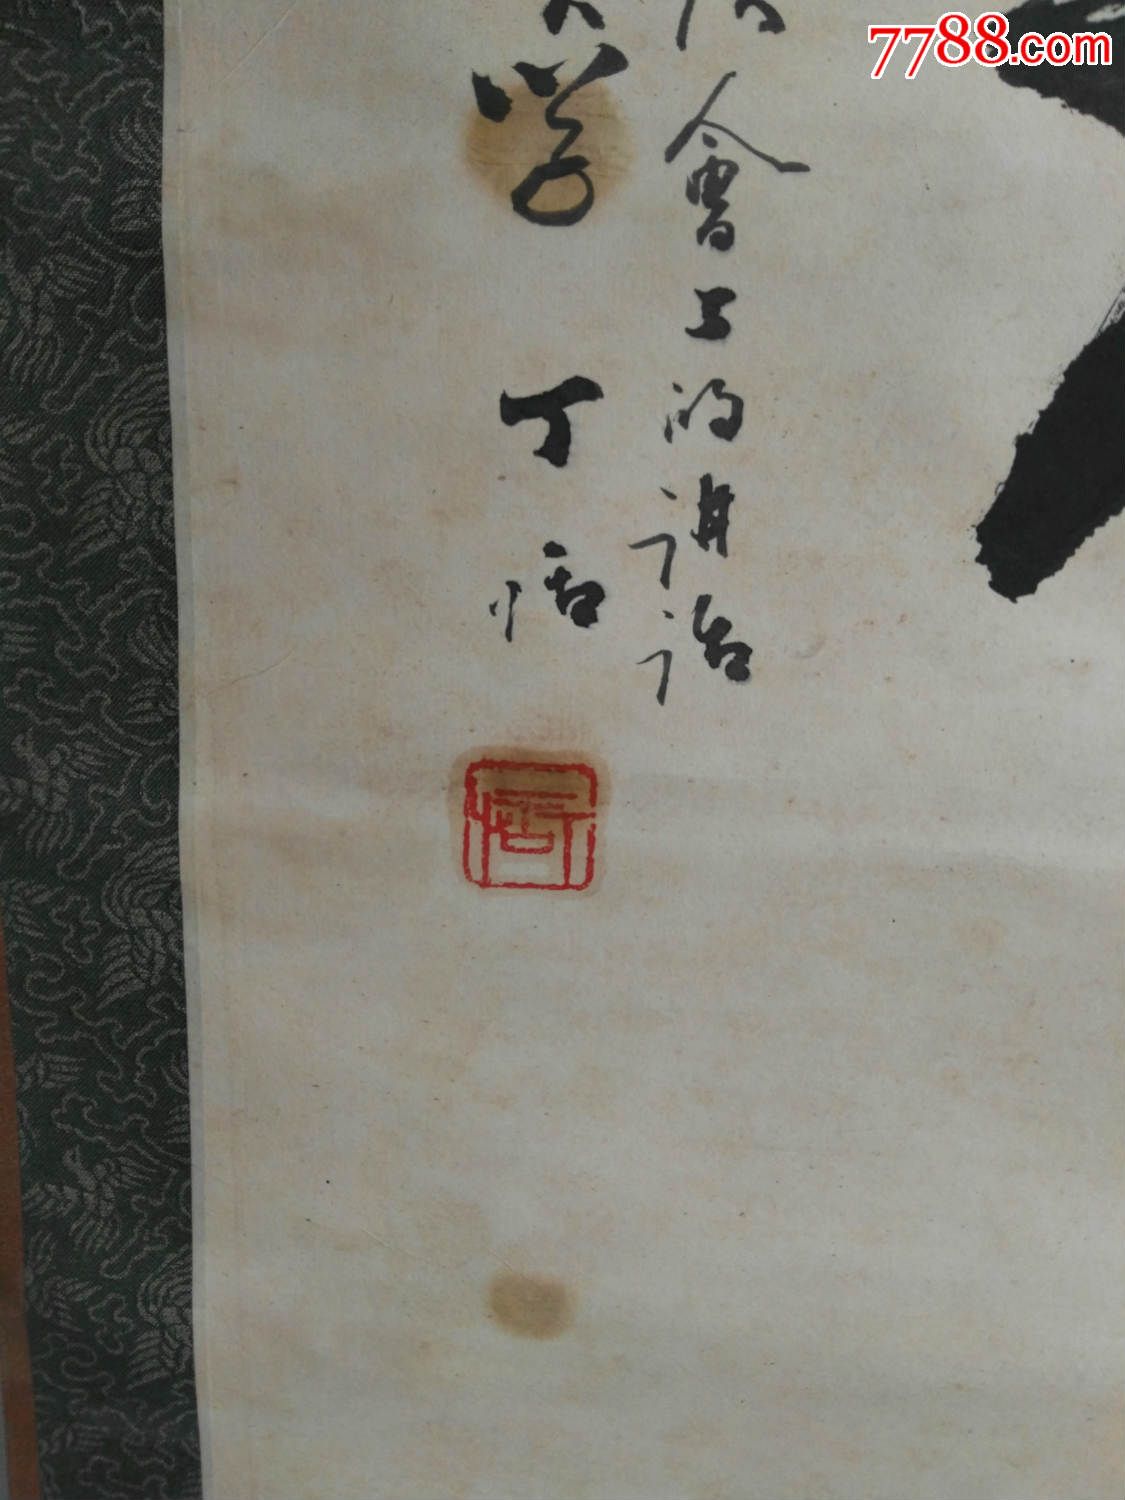 7788.com
會上的講話
丁恬